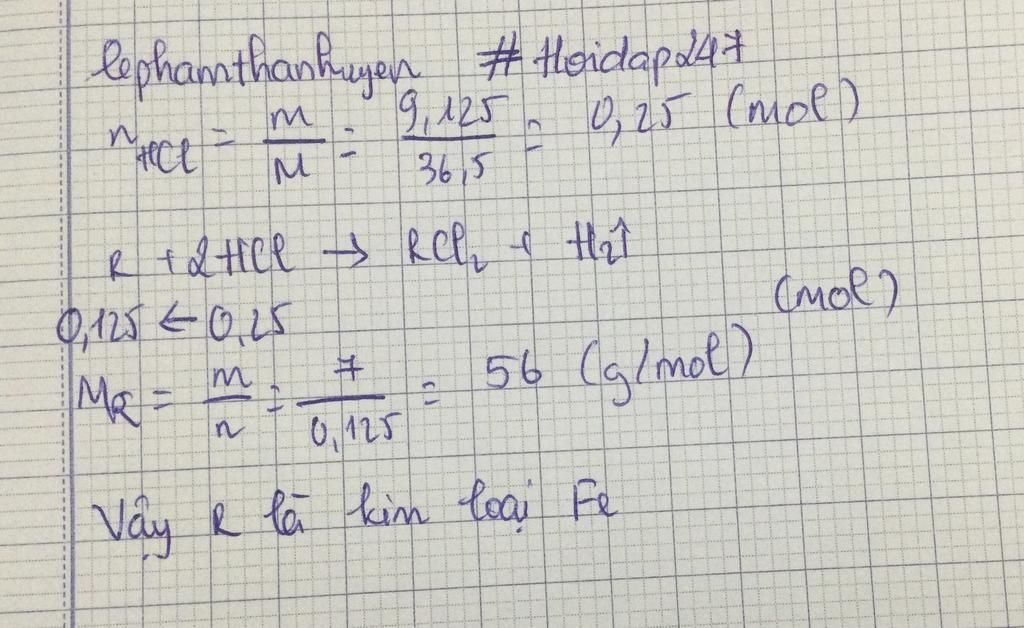 lephamthanhuyen #Hoidap247
nHCl = m/M = 9,125/36,5 = 0,25 (mol)
R + 2HCl → RCl₂ + H₂↑
0,125 ← 0,25 (mol)
MR = m/n = 7/0,125 = 56 (g/mol)
Vậy R là kim loại Fe